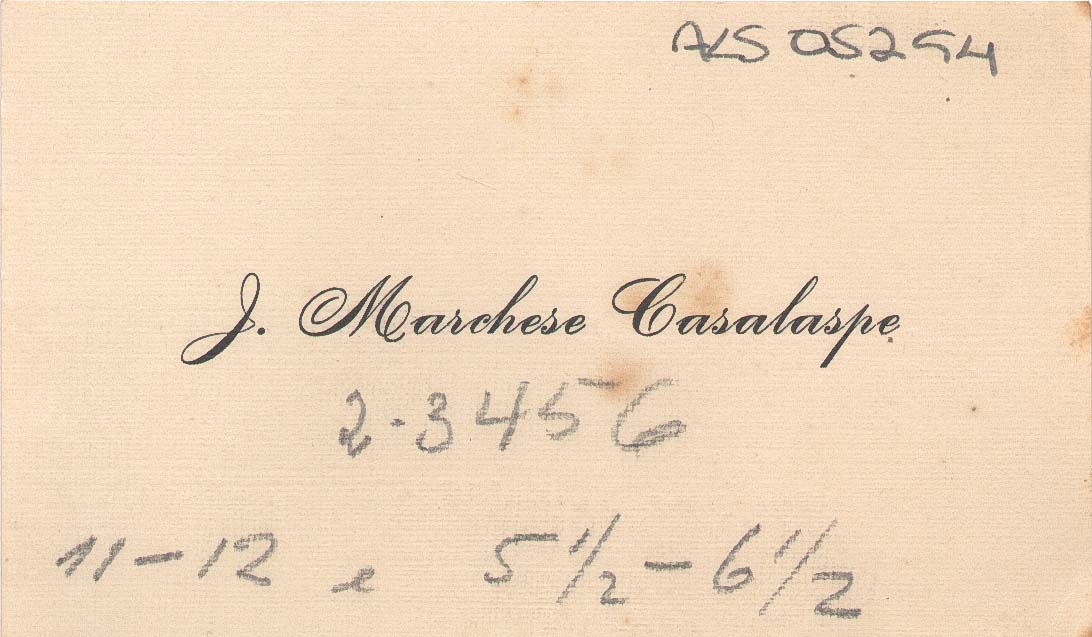 ALS 05294
J. Marchese Casalaspe
2-3456
11-12 e 5 1/2 - 6 1/2